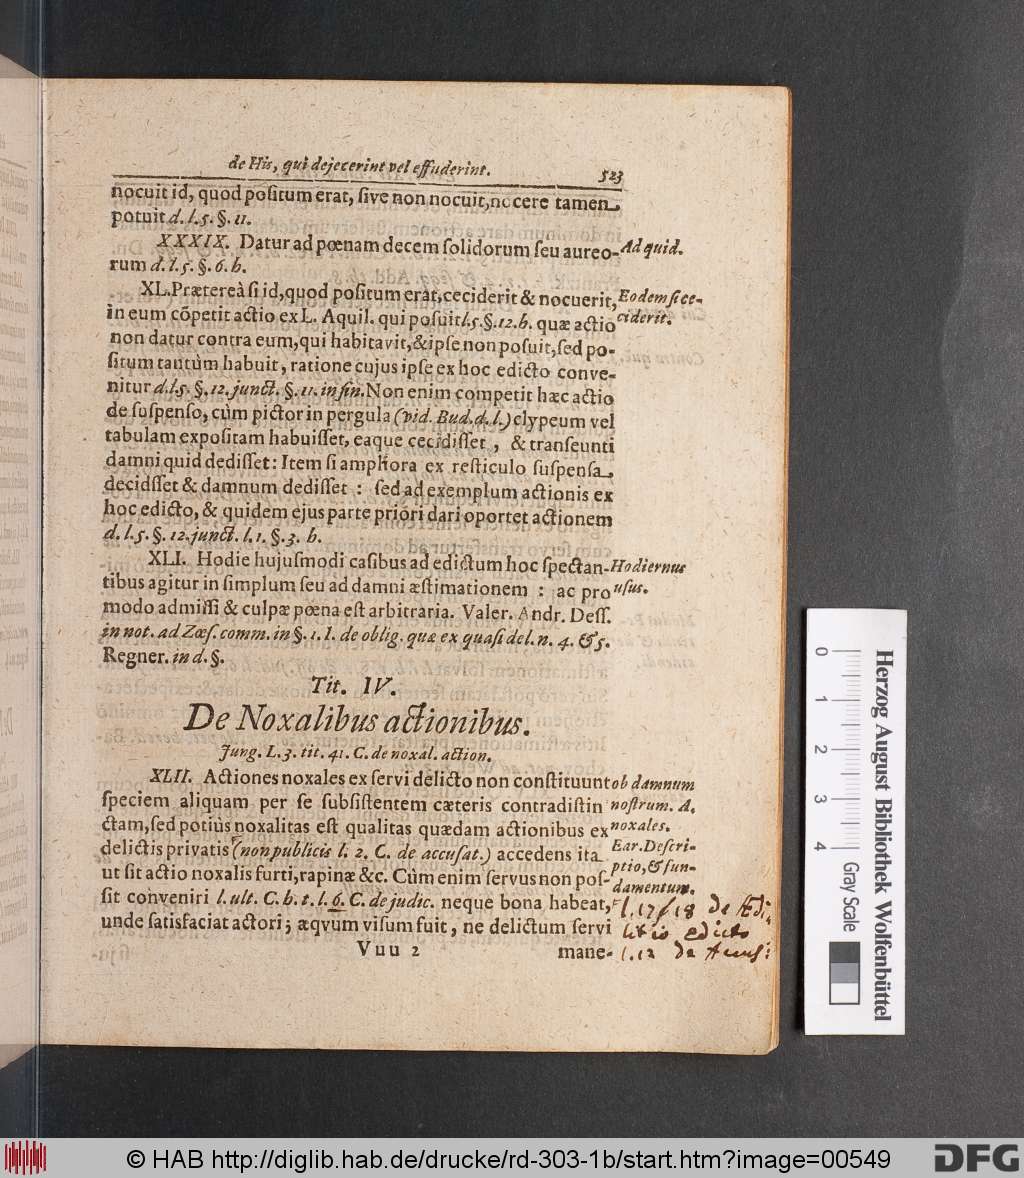 de His, qui dejecerint vel effuderint. 523
nocuit id, quod positum erat, sive non nocuit, nocere tamen
potuit d. l. 5. §. 11.
XXXIX. Datur ad pœnam decem solidorum seu aureo- Ad quid.
rum d. l. 5. §. 6. h.
XL. Prætereà si id, quod positum erat, ceciderit & nocuerit, Eodem si ce-
in eum cõpetit actio ex L. Aquil. qui posuit l. 5. §. 12. h. quæ actio ciderit.
non datur contra eum, qui habitavit, & ipse non posuit, sed po-
situm tantùm habuit, ratione cujus ipse ex hoc edicto conve-
nitur d. l. 5. §. 12. junct. §. 11. in fin. Non enim competit hæc actio
de suspenso, cùm pictor in pergula (vid. Bud. d. l.) clypeum vel
tabulam expositam habuisset, eaque cecidisset, & transeunti
damni quid dedisset: Item si amphora ex resticulo suspensa
decidsset & damnum dedisset : sed ad exemplum actionis ex
hoc edicto, & quidem ejus parte priori dari oportet actionem
d. l. 5. §. 12. junct. l. 1. §. 3. h.
XLI. Hodie hujusmodi casibus ad edictum hoc spectan- Hodiernus
tibus agitur in simplum seu ad damni æstimationem : ac pro usus.
modo admissi & culpæ pœna est arbitraria. Valer. Andr. Dess.
in not. ad Zœs. comm. in §. 1. I. de oblig. quæ ex quasi del. n. 4. & 5.
Regner. in d. §.
Tit. IV.
De Noxalibus actionibus.
Jung. L. 3. tit. 41. C. de noxal. action.
XLII. Actiones noxales ex servi delicto non constituunt ob damnum
speciem aliquam per se subsistentem cæteris contradistin nostrum. A.
ctam, sed potiùs noxalitas est qualitas quædam actionibus ex noxales.
delictis privatis (non publicis l. 2. C. de accusat.) accedens ita Ear. Descri-
ut sit actio noxalis furti, rapinæ &c. Cùm enim servus non pos- ptio, & fun-
damentum.
sit conveniri l. ult. C. h. t. l. 6. C. de judic. neque bona habeat, l. 17/18 de Ædi
unde satisfaciat actori; æqvum visum fuit, ne delictum servi litio edicto
Vuu 2 mane- l. 12 de Accus:
0 1 2 3 4
Herzog August Bibliothek Wolfenbüttel
Gray Scale
© HAB http://diglib.hab.de/drucke/rd-303-1b/start.htm?image=00549
DFG